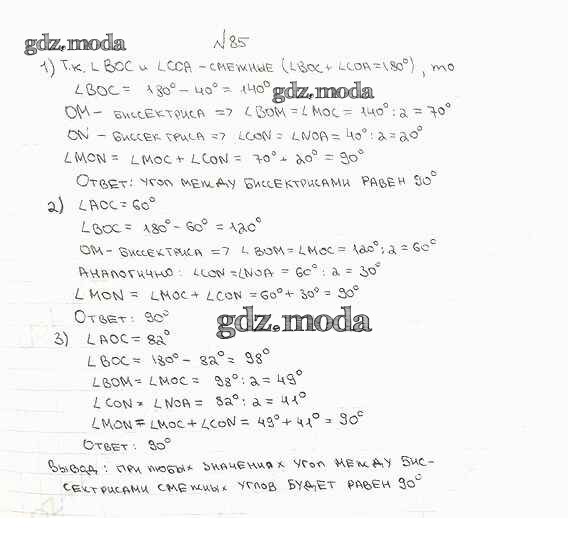 gdz.moda
№85
1) Т.к. ∠BOC и ∠COA - смежные (∠BOC + ∠COA = 180°), то
∠BOC = 180° - 40° = 140°
gdz.moda
OM - биссектриса => ∠BOM = ∠MOC = 140° : 2 = 70°
ON - биссектриса => ∠CON = ∠NOA = 40° : 2 = 20°
∠MON = ∠MOC + ∠CON = 70° + 20° = 90°
Ответ: угол между биссектрисами равен 90°
2) ∠AOC = 60°
∠BOC = 180° - 60° = 120°
OM - биссектриса => ∠BOM = ∠MOC = 120° : 2 = 60°
Аналогично: ∠CON = ∠NOA = 60° : 2 = 30°
∠MON = ∠MOC + ∠CON = 60° + 30° = 90°
Ответ: 90°
gdz.moda
3) ∠AOC = 82°
∠BOC = 180° - 82° = 98°
∠BOM = ∠MOC = 98° : 2 = 49°
∠CON = ∠NOA = 82° : 2 = 41°
∠MON = ∠MOC + ∠CON = 49° + 41° = 90°
Ответ: 90°
Вывод: при любых значениях угол между бис-
сектрисами смежных углов будет равен 90°